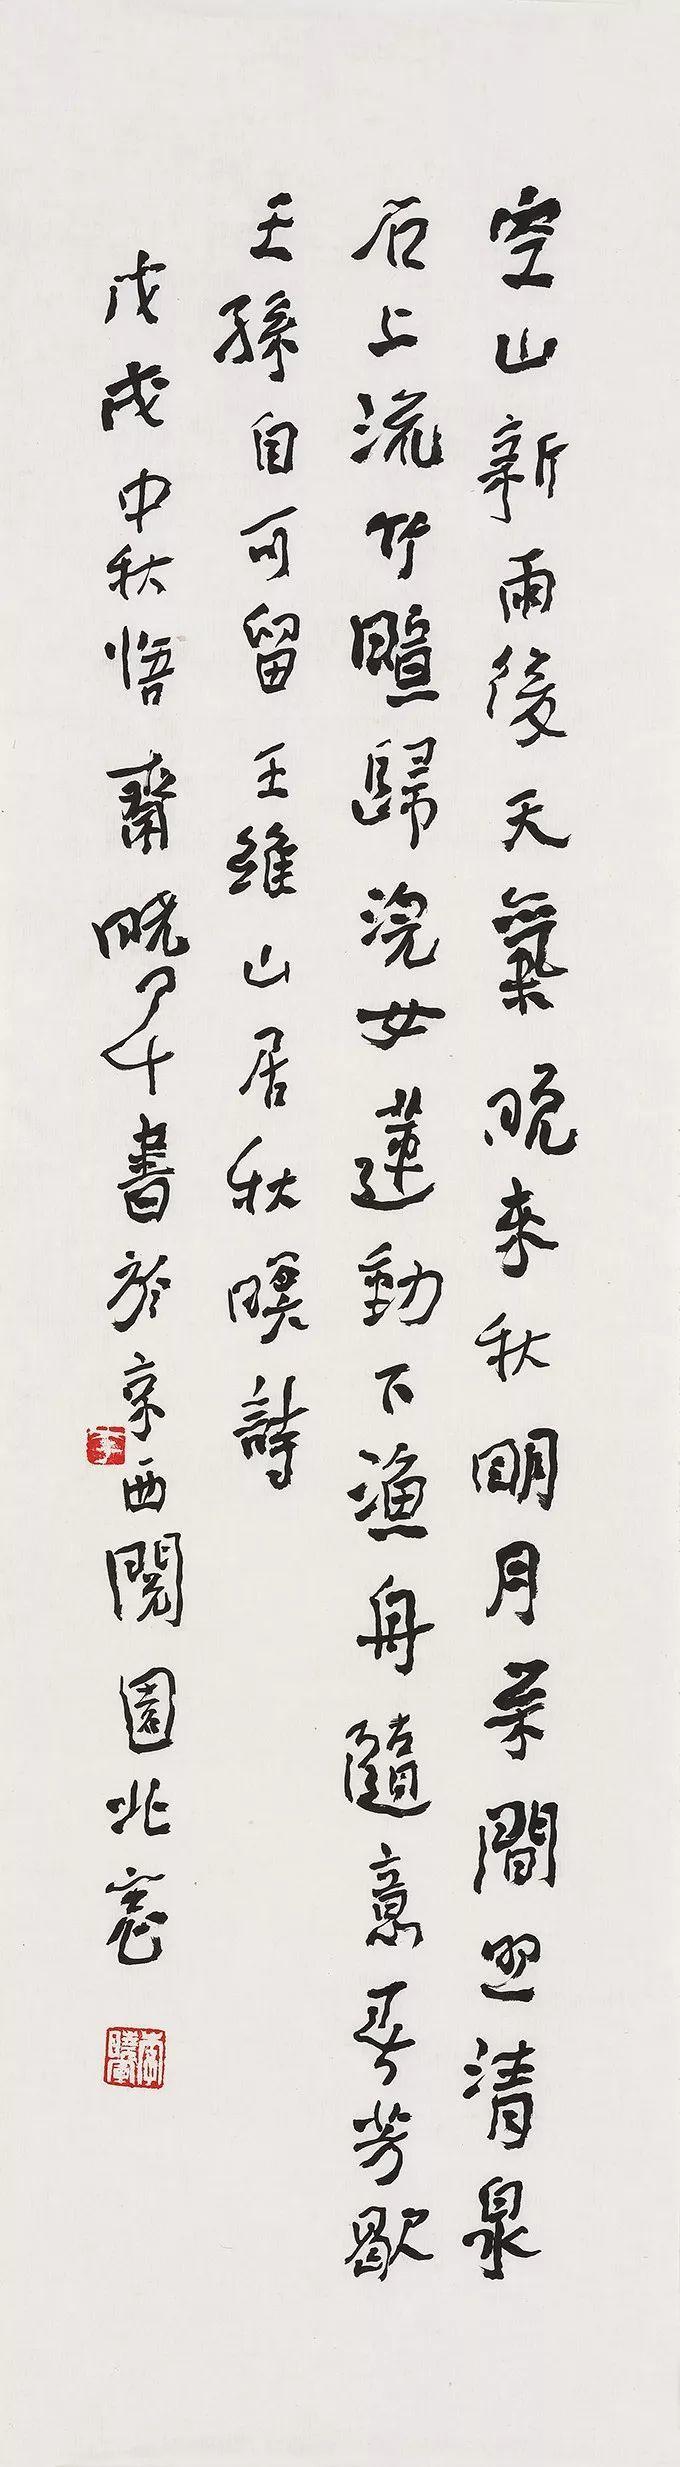 空山新雨後天氣晚來秋明月松間照清泉
石上流竹喧歸浣女蓮動下漁舟隨意春芳歇
王孫自可留 王維山居秋暝詩
戊戌中秋悟齋曉軍書於京西閱園北窗
李曉軍